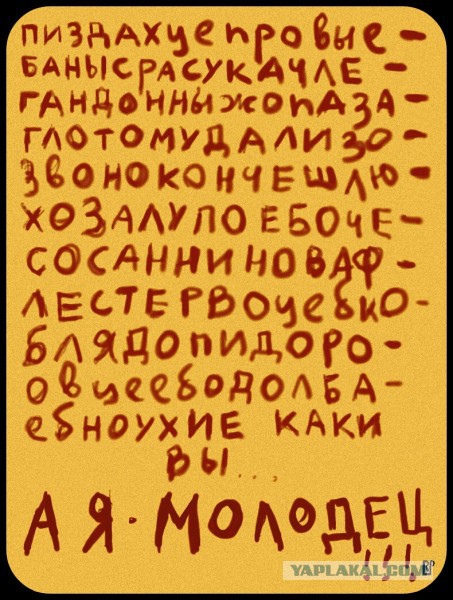 ПИЗДАХУЕПРОВЫЕ-
БАНЫСРАСУКАЧЛЕ-
ГАНДОННЫЖОПАЗА-
ГЛОТОМУДАЛИЗО-
ЗВОНОКОНЧЕШЛЮ-
ХОЗАЛУПОЕБОЧЕ-
СОСАННИНОВАФ-
ЛЕСТЕРВОУЕБКО-
БЛЯДОПИДОРО-
ОВЦЕЕБОДОЛБА-
ЕБНОУХИЕ КАКИ
ВЫ....
А Я-МОЛОДЕЦ
!!!
YAPLAKAL.COM